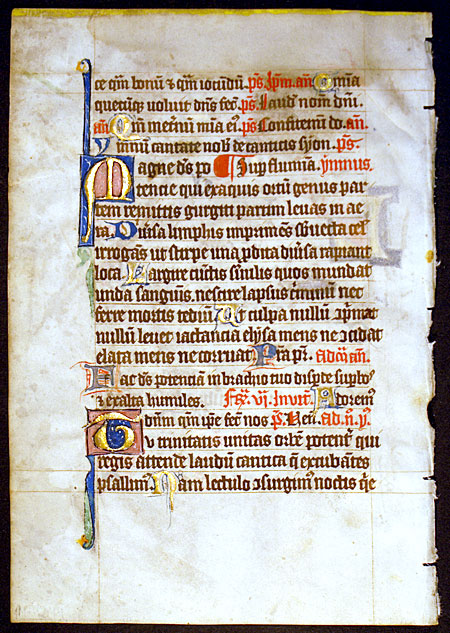 ce qm̄ bonū & qm̄ iocundū. ps. Ip̄m. an̄. Om̄ia
quecūq; voluit dn̄s fec̄. ps. Laud̄ nom̄ dn̄i.
an̄. Qm̄ in et̄nū mīa eī. ps. Confitemī do. an̄.
ymnū cantate nob̄ de canticis syon. ps.
Magne ds̄ po ¶ Sup flumīa. ymnus.
tencie qui ex aquis ortū genus par
tem remittis gurgiti partim leuas in ae
ra. Dimsa limphis imprimēs sb̄uecta cel̄
irrogās ut stirpe una pdita diūsa rapiant
loca. Largire cūctis s̄uulis quos mundat
unda sanguīs. nescire lapsus c̄minū nec
ferre mortis tediū. Ut culpa nullū dep̄mat
nullū leuet iactancia elisa mens ne ꝯcidat
elata mens ne corruat. Pr̄a p̄r. Ad m̄ an̄.
Fac ds̄ potenciā in brachio tuo disp̄de suꝑbos
& exalta humiles. Fr̄. vj. Inuit̄. Adorem⁹
dn̄m qm̄ ip̄e fec̄ nos p̄s. Ven̄. Ad. n̄. ȳ.
Tu trinitatis unitas orbē potent̄ qui
regis attende laudū cantica q̄ excubātes
psallim⁹. Nam lectulo ꝯsurgim⁹ noctis q̄e